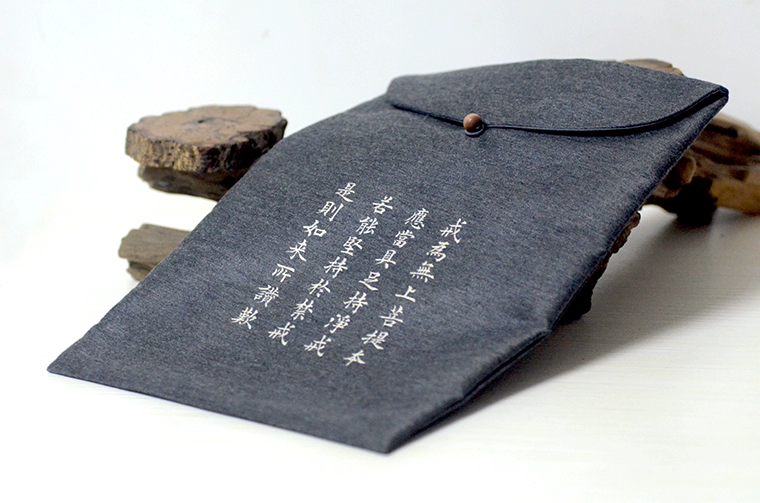 戒為無上菩提本
應當具足持淨戒
若能堅持於禁戒
是則如來所讚歎